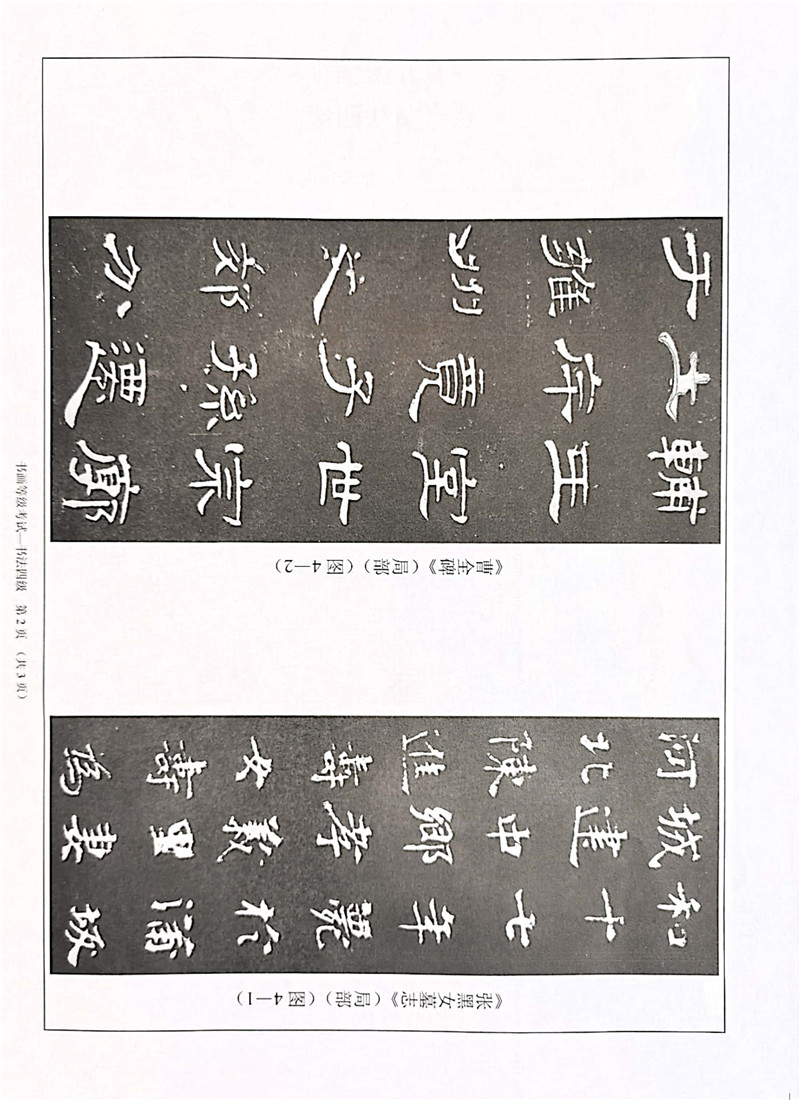 和十七年薨於蒲坂
城建中鄉孝義里妻
河北陳進壽女壽為
《张黑女墓志》(局部)(图4—1)
輔王室世宗廓
土斥竟子孫遷
于雍州之郊分
《曹全碑》(局部)(图4—2)
书画等级考试—书法四级 第2页 (共3页)